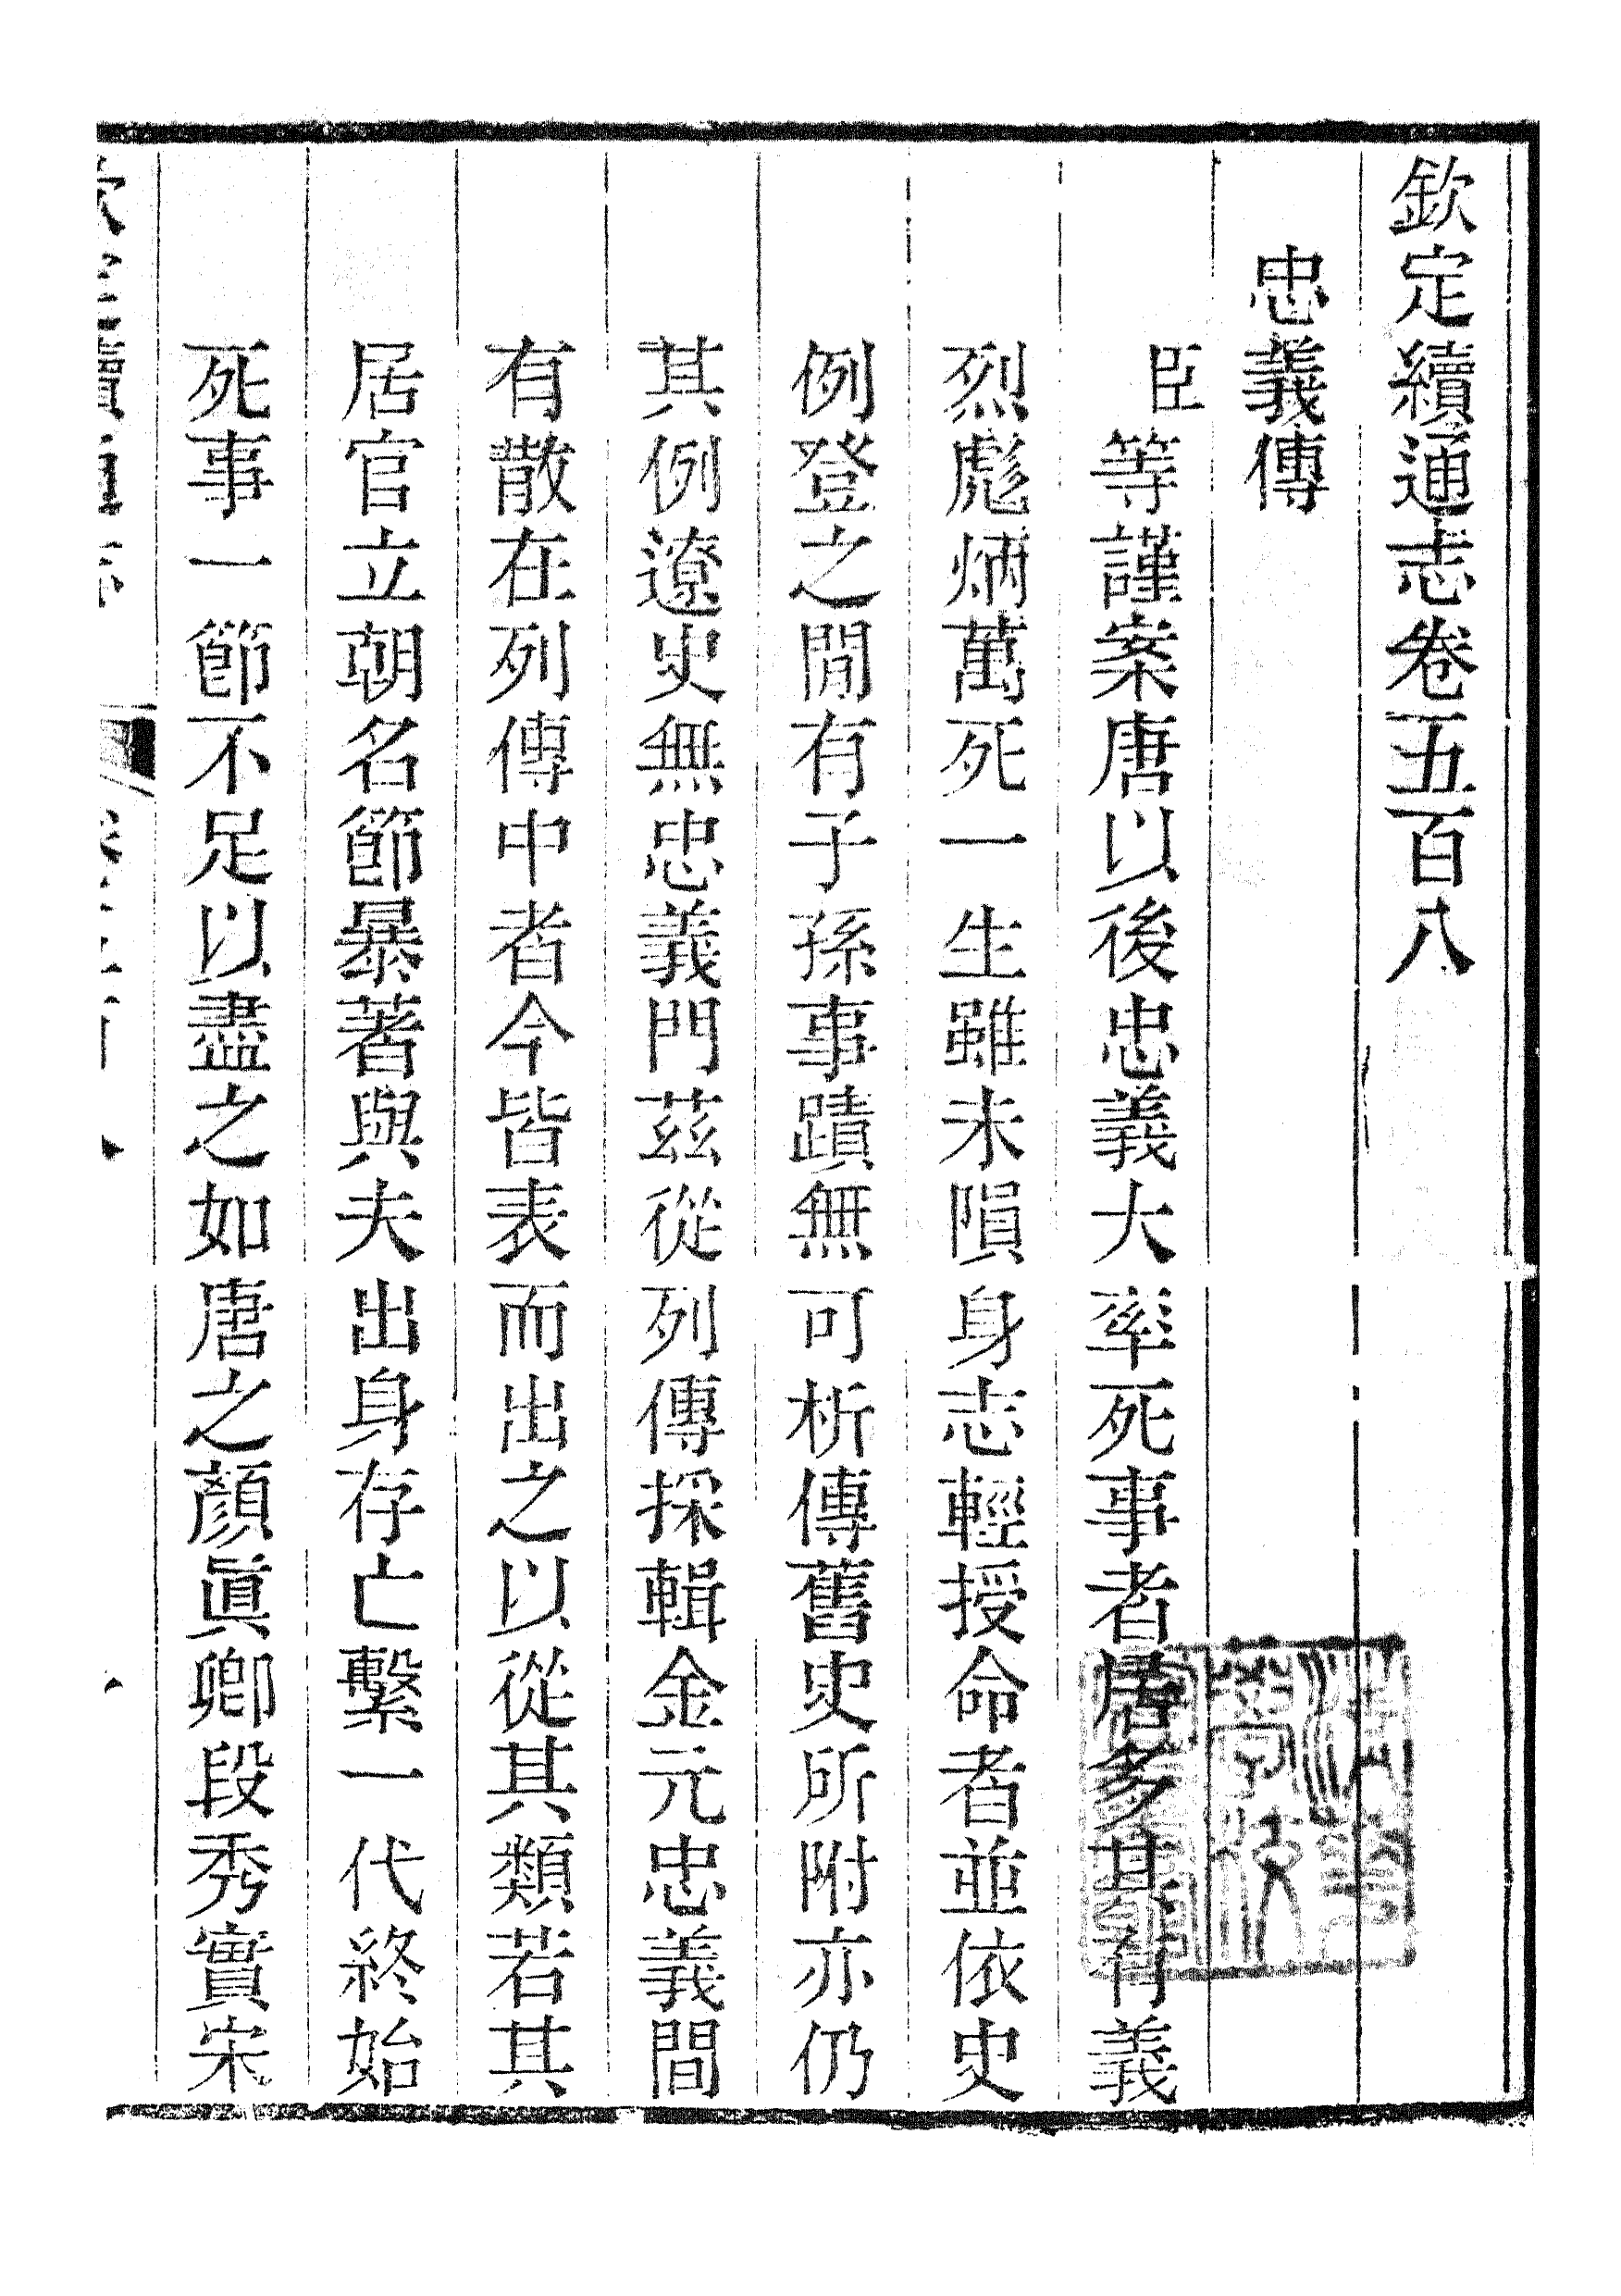 欽定續通志卷五百八
忠義傳
臣等謹案唐以後忠義大率死事者居多其有義
烈彪炳萬死一生雖未隕身志輕授命者並依史
例登之閒有子孫事蹟無可析傳舊史所附亦仍
其例遼史無忠義門茲從列傳採輯金元忠義間
有散在列傳中者今皆表而出之以從其類若其
居官立朝名節暴著與夫出身存亡繫一代終始
死事一節不足以盡之如唐之顏眞卿段秀實宋